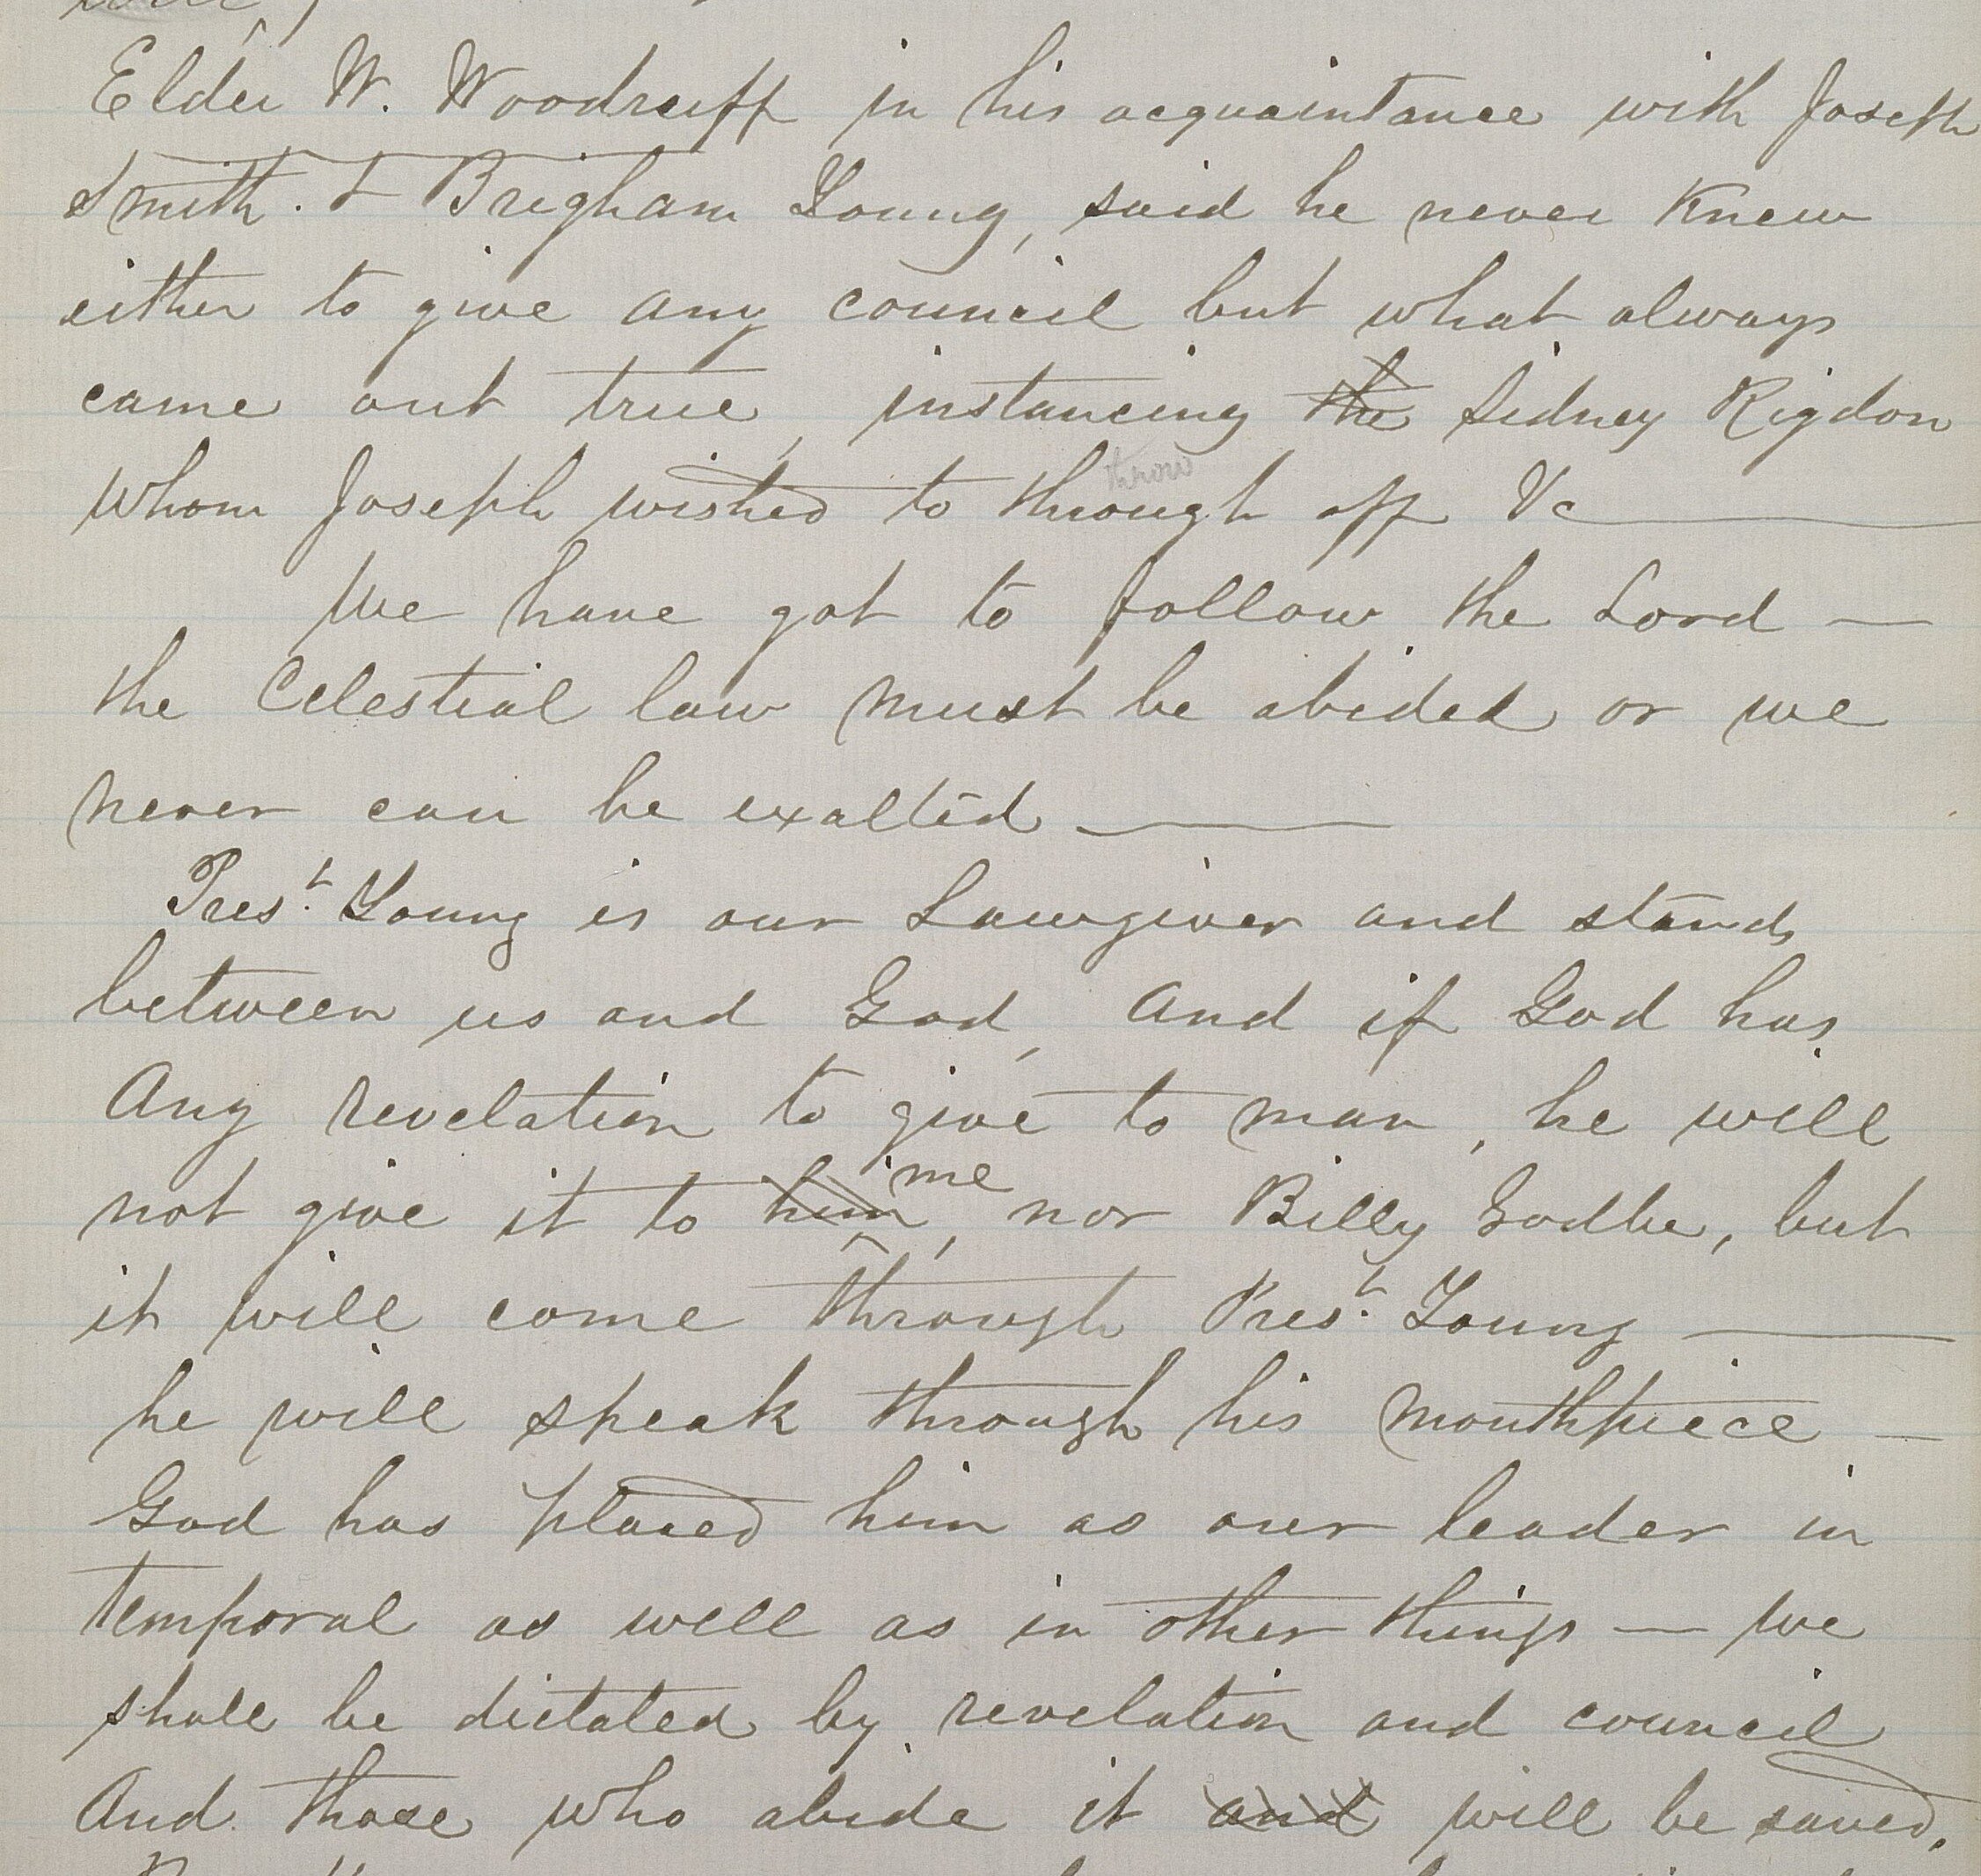 Elder W. Woodruff in his acquaintance with Joseph
Smith. & Brigham Young, said he never Knew
either to give any council but what always
came out true, instancing the Sidney Rigdon
throw
whom Joseph wished to through off &c
We have got to follow the Lord —
the Celestial law must be abided or we
never can be exalted —
Prest. Young is our Lawgiver and stands
between us and God, And if God has
Any revelation to give to man, he will
me
not give it to him, nor Billy Godbe, but
it will come through Prest. Young —
he will speak through his mouthpiece —
God has placed him as our leader in
temporal as well as in other things — we
shall be dictated by revelation and council
And those who abide it and will be saved,